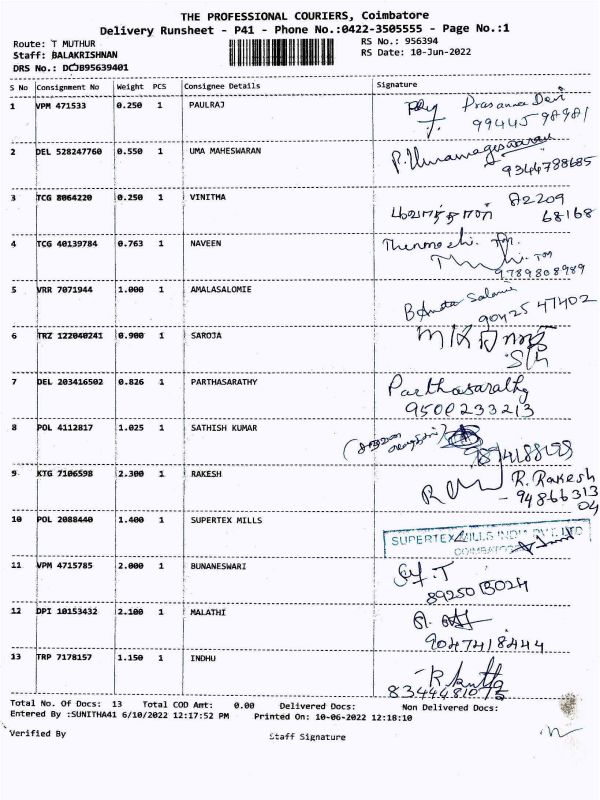 THE PROFESSIONAL COURIERS, Coimbatore
Delivery Runsheet - P41 - Phone No.:0422-3505555 - Page No.:1
Route: T MUTHUR RS No.: 956394
Staff: BALAKRISHNAN RS Date: 10-Jun-2022
DRS No.: DCJB95639401
S No Consignment No Weight PCS Consignee Details Signature
1 VPM 471533 0.250 1 PAULRAJ Prasanna Devi
99445 98981
2 DEL 528247760 0.550 1 UMA MAHESWARAN P. Umamageswaran
9344788685
3 TCG 8064220 0.250 1 VINITHA 82209
68168
4 TCG 40139784 0.763 1 NAVEEN Thenmozhi.
9789808989
5 VRR 7071944 1.000 1 AMALASALOMIE
90425 47402
6 TRZ 122040241 0.900 1 SAROJA
7 DEL 203416502 0.826 1 PARTHASARATHY Parthasarathy
9500233213
8 POL 4112817 1.025 1 SATHISH KUMAR
9 KTG 7106598 2.300 1 RAKESH R. Rakesh
94866313
04
10 POL 2088440 1.400 1 SUPERTEX MILLS SUPERTEX MILLS INDIA PVT LTD
COIMBATORE
11 VPM 4715785 2.000 1 BUNANESWARI
89250 15024
12 DPI 10153432 2.100 1 MALATHI
9047418444
13 TRP 7178157 1.150 1 INDHU
Total No. Of Docs: 13 Total COD Amt: 0.00 Delivered Docs: Non Delivered Docs:
Entered By :SUNITHA41 6/10/2022 12:17:52 PM Printed On: 10-06-2022 12:18:10
Verified By Staff Signature